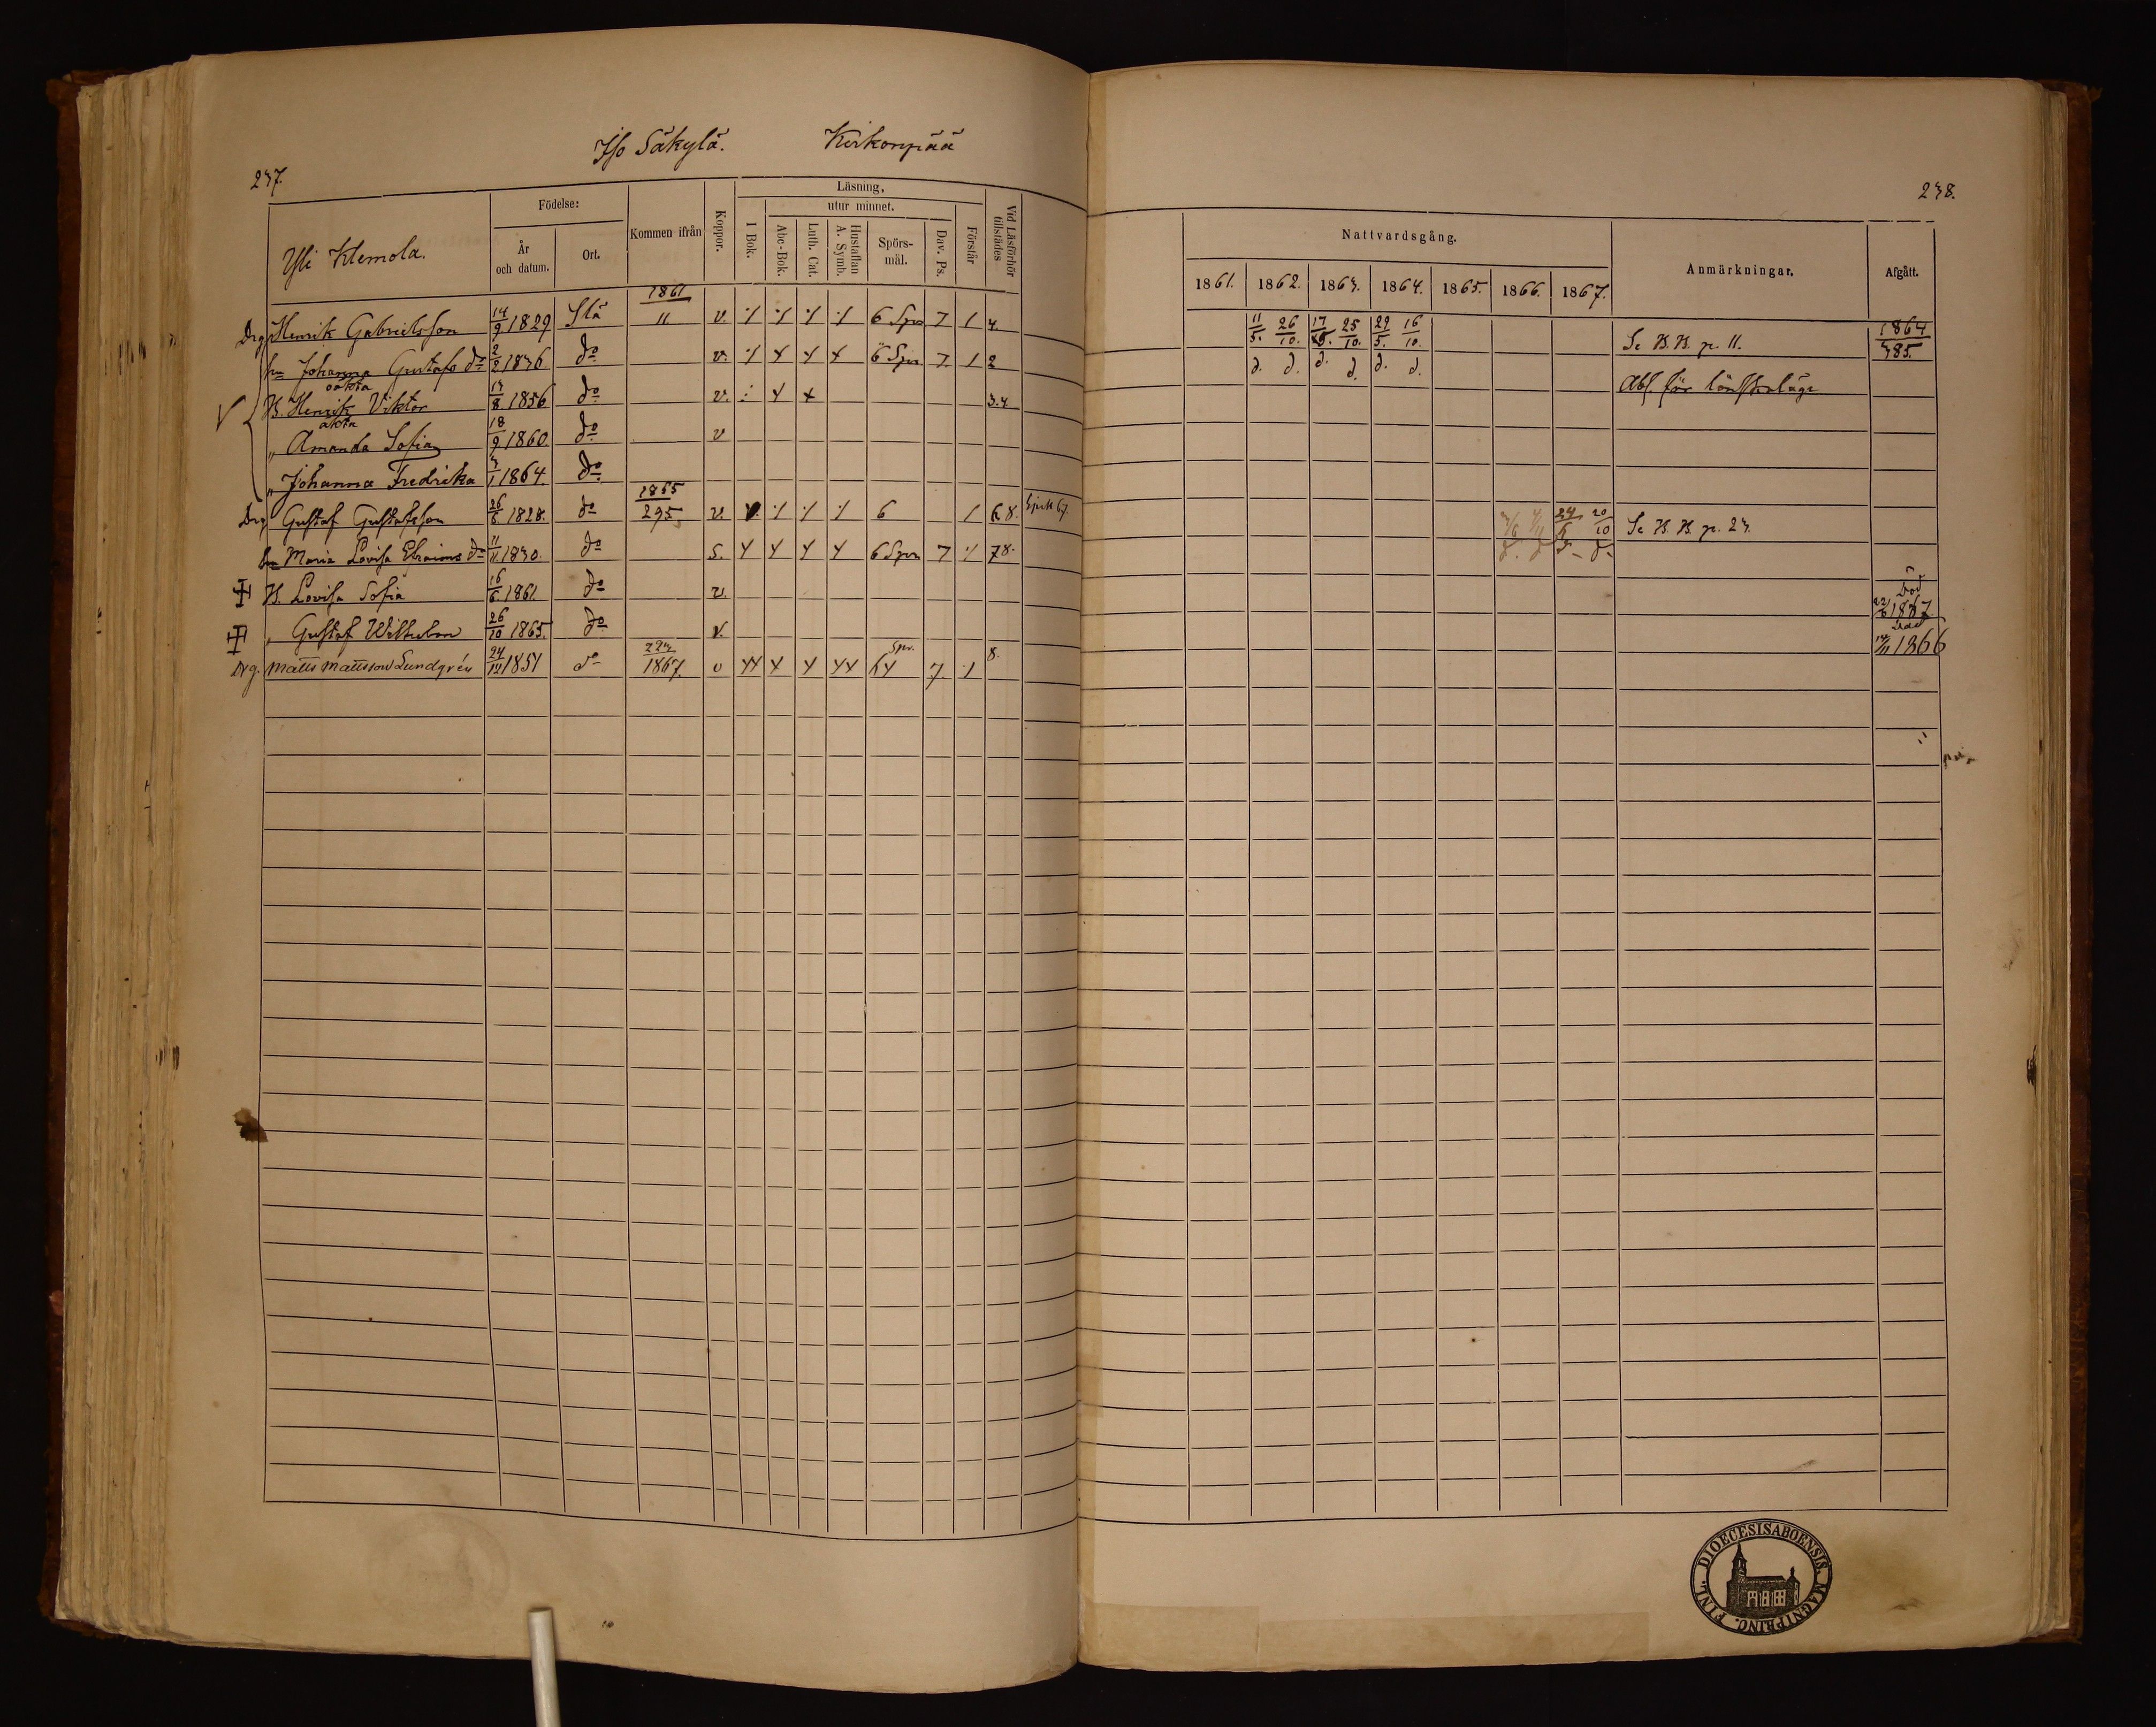 237.
Iso Säkylä. Kirkonpää
Yli Klemola.
Födelse:
År och datum.
Ort.
Kommen ifrån
Koppor.
Läsning,
I Bok.
utur minnet.
Abc-Bok.
Luth. Cat.
Hustaflan A. Symb.
Spörs-mål.
Dav. Ps.
Förstår
Vid Läsförhör tillstädes
Drg Henrik Gabrielsson 14/9 1829 Slä 1861/11 v. 6 Spm 7 1 4.
hu Johanna Gustafs do 2/2 1836 do v. 6 Spm 7 1 2
oäkta
B. Henrik Viktor 13/8 1856 do v. 3.4
äkta
„ Amanda Sofia 18/9 1860 do v
„ Johanna Fredrika 3/1 1864. do
Drg Gustaf Gustafsson 26/6 1828. do 1865/295 v. 6 1 6.8.
hu Maria Lovisa Efraims do 11/11 1830. do s. 6 Spm 7 78.
B. Lovisa Sofia 16/6 1861. do v.
„ Gustaf Wilhelm 26/10 1865. do v.
Drg. Matts Mattsson Lundgrén 24/12 1851 do 223/1867. v 7. 8.
238.
Nattvardsgång.
1861. 1862. 1863. 1864. 1865. 1866. 1867.
Anmärkningar.
Afgått.
11/5. 26/10. 17/5. 25/10. 29/5. 16/10. Se K. B. p. 11. 1864/385.
d. d. d. d. d. d.
Abs. för lönskaläge
24/6 20/10 Se K. B. p. 23.
Död
1867.
Död
1866
FINL. DIOECESIS ABOENSIS. MAGNI PRINC.